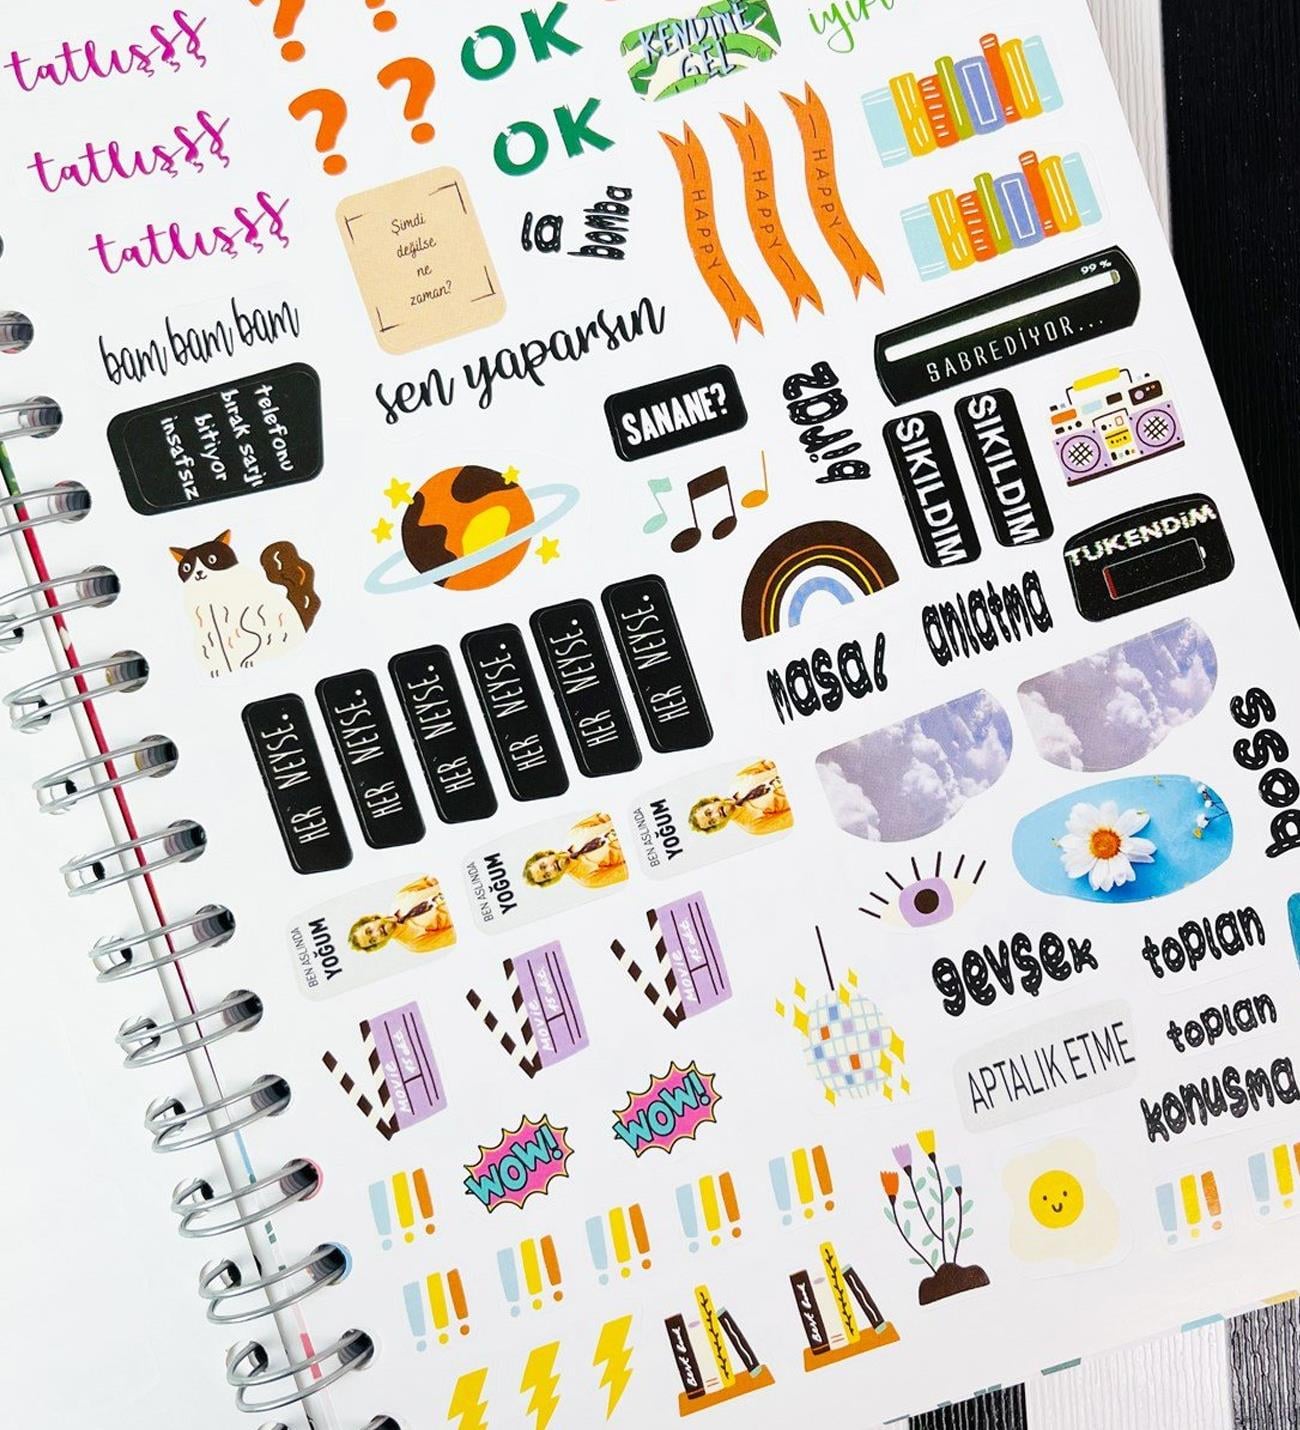 tatlışşş
OK
KENDİNE
GEL
tatlışşş
OK
tatlışşş
Şimdi
değilse
ne
zaman?
la
bomba
HAPPY
HAPPY
HAPPY
99 %
SABREDİYOR...
bam bam bam
sen yaparsın
telefonu
bırak sarjı
bitiyor
insafsız
SANANE?
zorlu
SIKILDIM
SIKILDIM
TÜKENDİM
masal
anlatma
HER NEYSE.
HER NEYSE.
HER NEYSE.
HER NEYSE.
HER NEYSE.
HER NEYSE.
boss
BEN ASLINDA
YOĞUM
BEN ASLINDA
YOĞUM
BEN ASLINDA
YOĞUM
MOVIE
MOVIE
MOVIE
gevşek
toplan
APTALIK ETME
toplan
konuşma
WOW!
WOW!
!!!
!!!
!!!
!!!
!!!
!!!
!!!